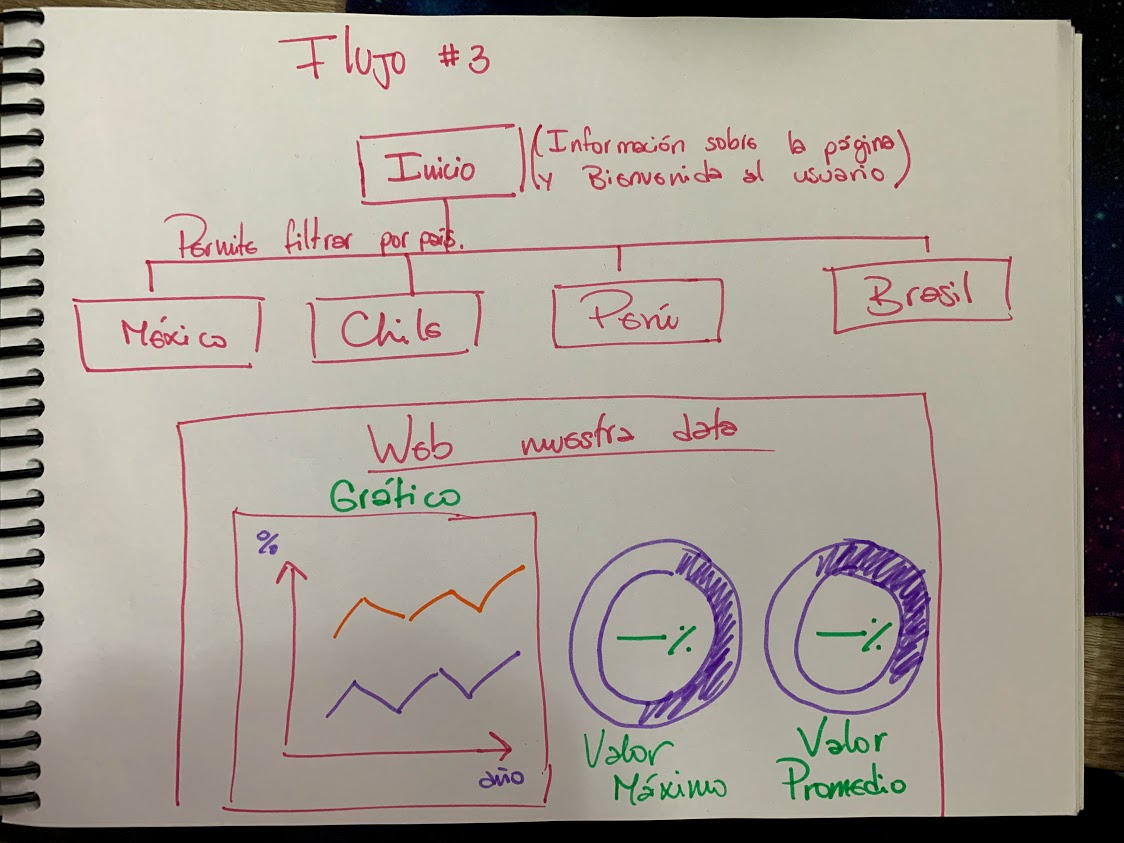 Flujo #3
Inicio
(Información sobre la página
y Bienvenida al usuario)
Permite filtrar por país.
México
Chile
Perú
Brasil
Web muestra data
Gráfico
%
año
%
Valor
Máximo
%
Valor
Promedio